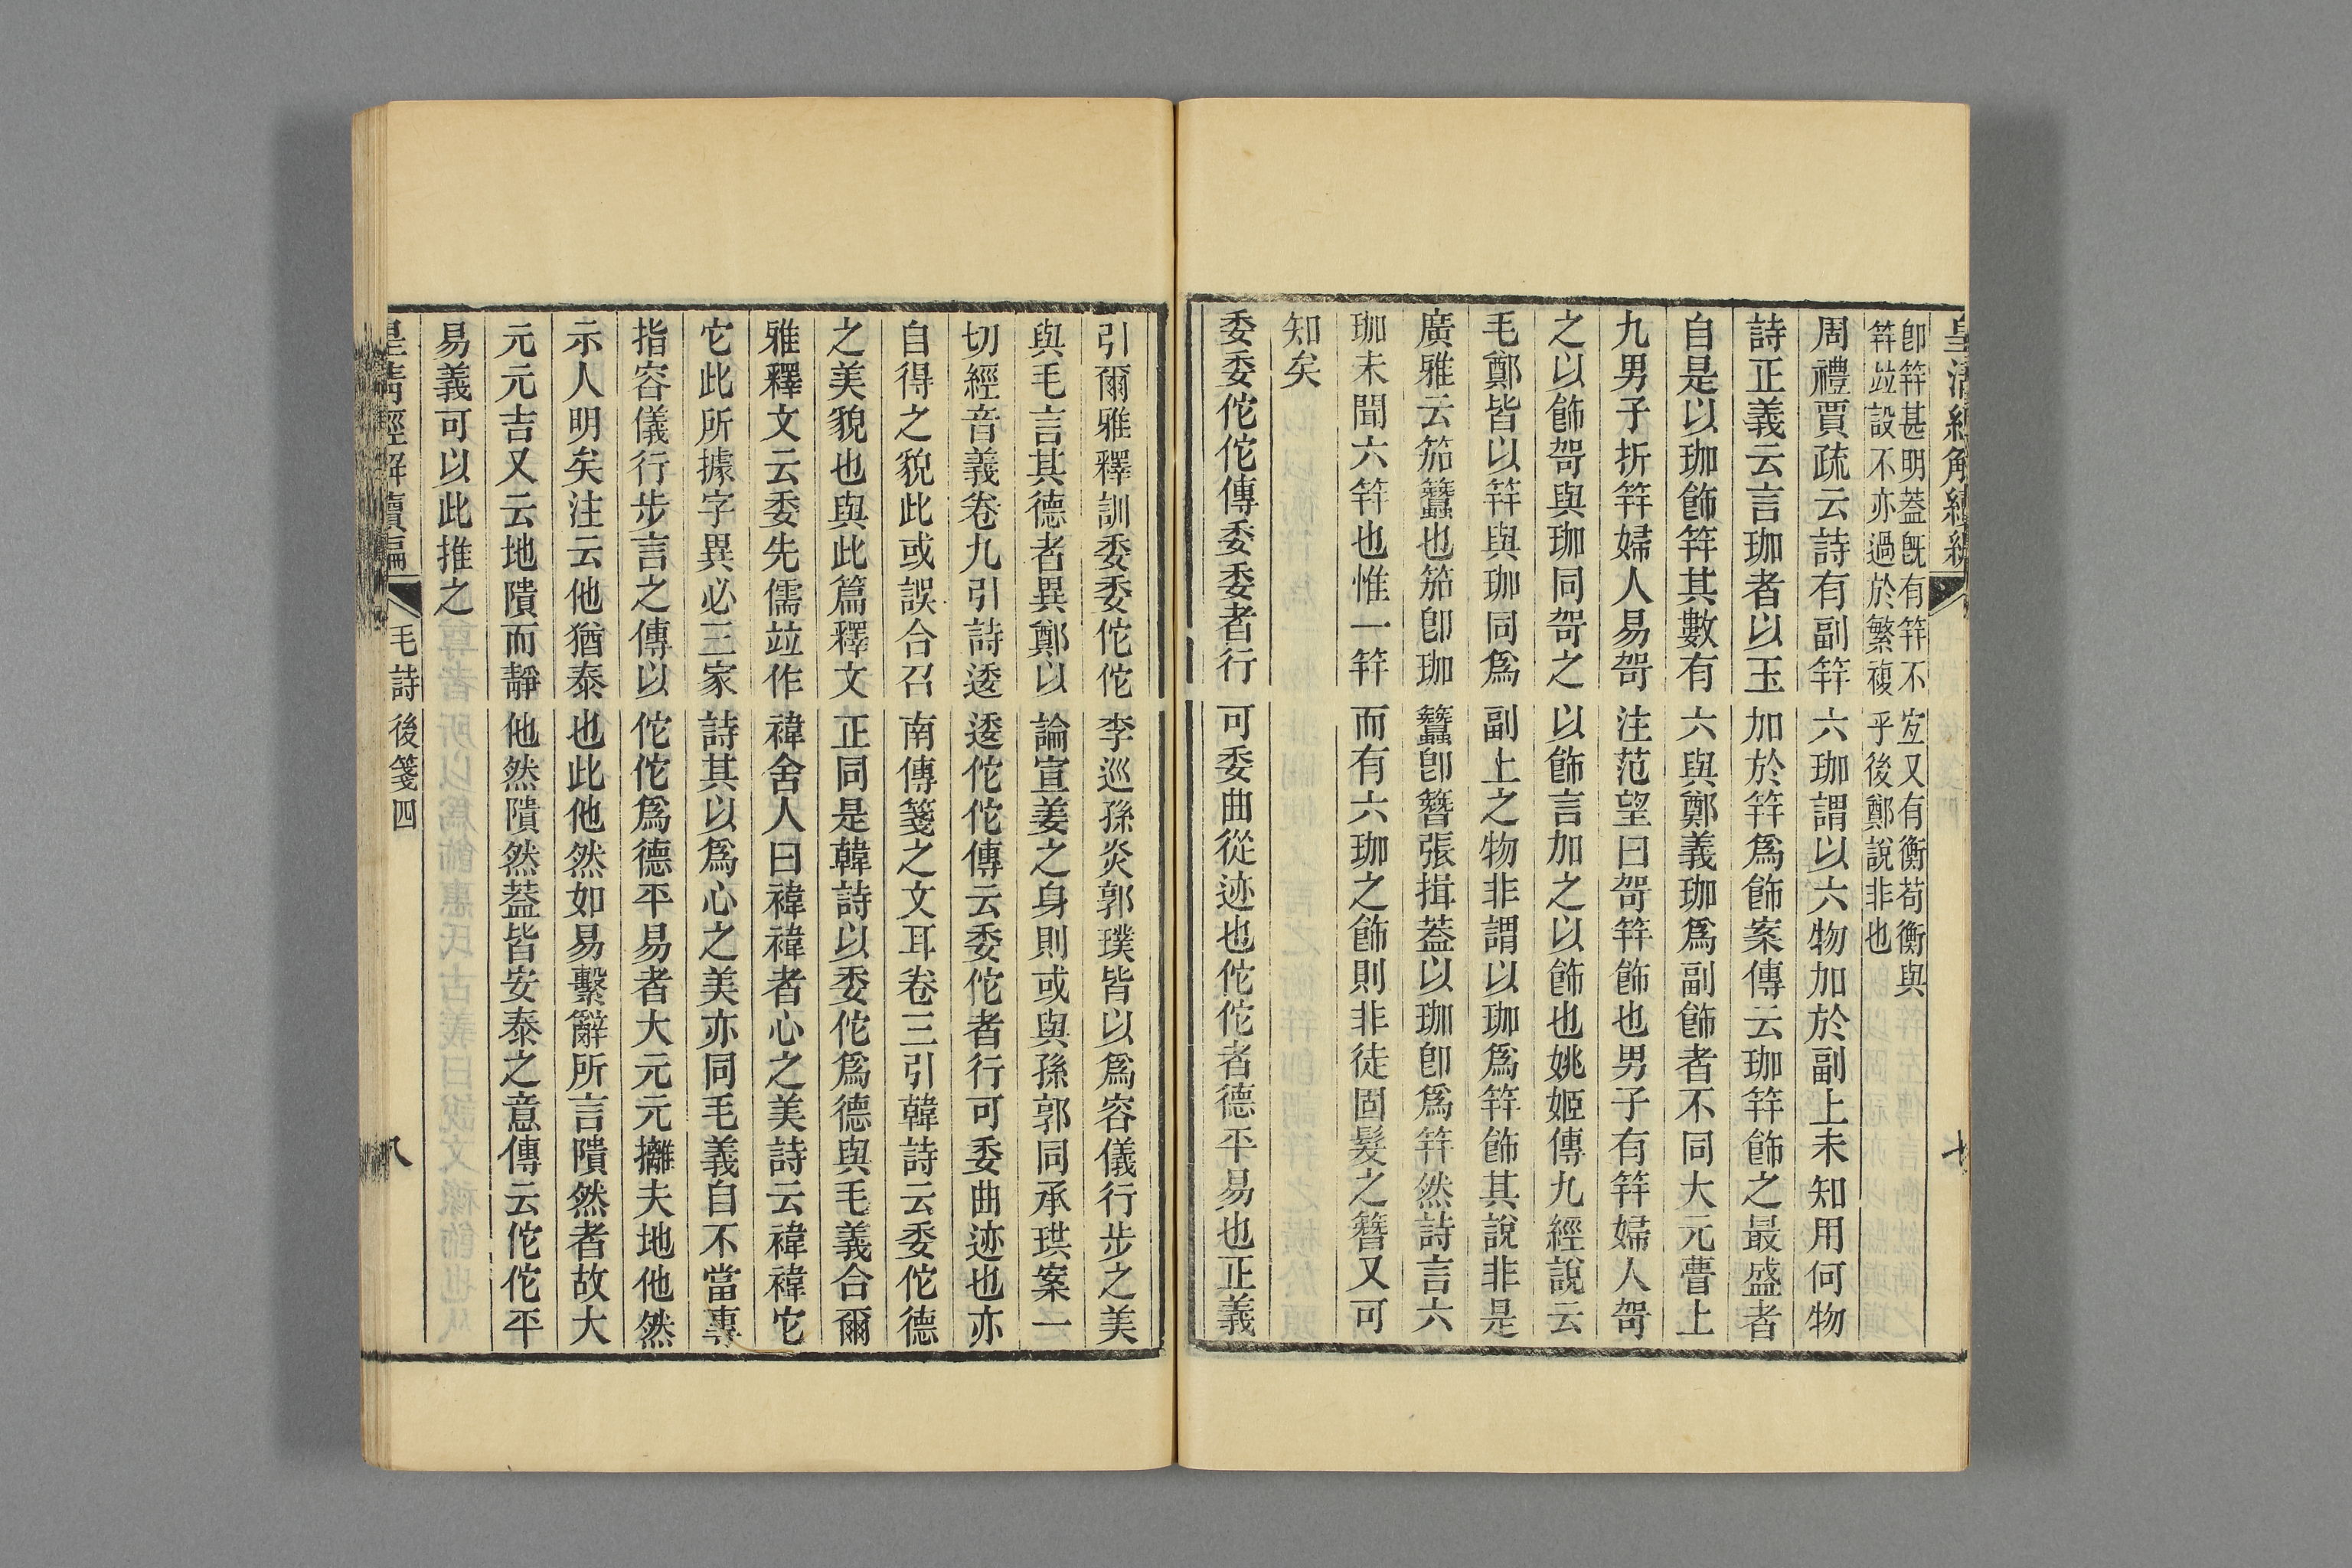 皇清經解續編
卽笄甚明葢旣有笄不宐又有衡苟衡與
笄竝設不亦過於繁複乎後鄭說非也
周禮賈疏云詩有副笄六珈謂以六物加於副上未知用何物
詩正義云言珈者以玉加於笄爲飾案傳云珈笄飾之最盛者
自是以珈飾笄其數有六與鄭義珈爲副飾者不同大元瞢上
九男子折笄婦人易哿注范望曰哿笄飾也男子有笄婦人哿
之以飾哿與珈同哿之以飾言加之以飾也姚姬傳九經說云
毛鄭皆以笄與珈同爲副上之物非謂以珈爲笄飾其說非是
廣雅云笳簪也笳卽珈簪卽簪張揖葢以珈卽爲笄然詩言六
珈未聞六笄也惟一笄而有六珈之飾則非徒固髮之簪又可
知矣
委委佗佗傳委委者行可委曲從迹也佗佗者德平易也正義
引爾雅釋訓委委佗佗李巡孫炎郭璞皆以爲容儀行步之美
與毛言其德者異鄭以論宣姜之身則或與孫郭同承珙案一
切經音義卷九引詩逶逶佗佗傳云委佗者行可委曲迹也亦
自得之貌此或誤合召南傳箋之文耳卷三引韓詩云委佗德
之美貌也與此篇釋文正同是韓詩以委佗爲德與毛義合爾
雅釋文云委先儒竝作褘舍人曰褘褘者心之美詩云褘褘它
它此所據字異必三家詩其以爲心之美亦同毛義自不當專
指容儀行步言之傳以佗佗爲德平易者大元元攡夫地他然
示人明矣注云他猶泰也此他然如易繫辭所言隤然者故大
元元吉又云地隤而靜他然隤然葢皆安泰之意傳云佗佗平
易義可以此推之
皇淸經解續編
毛詩後箋四
八